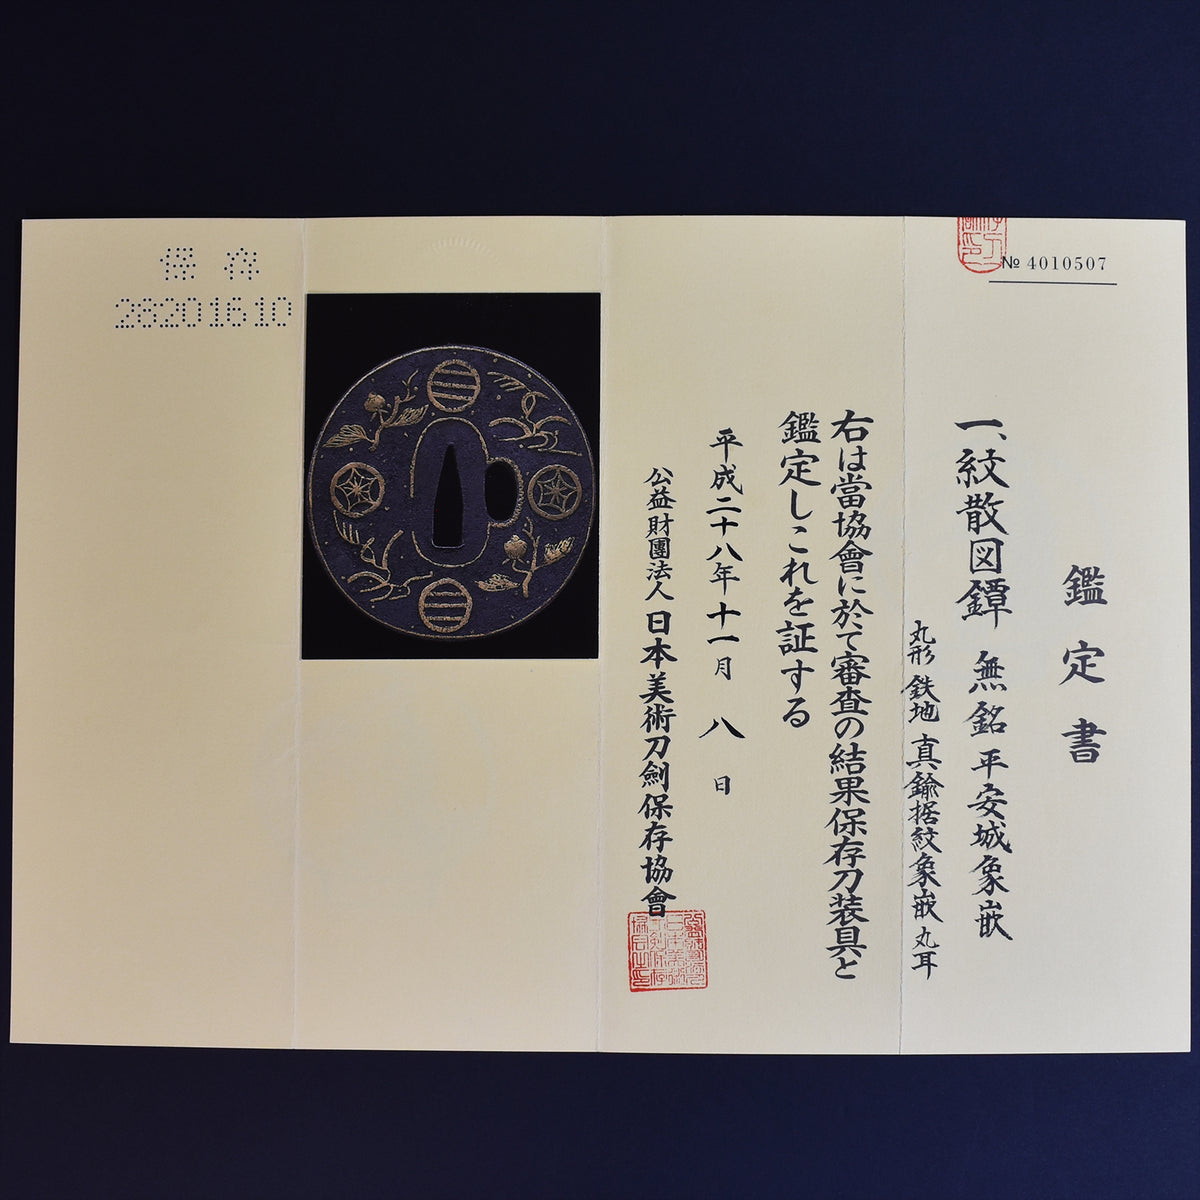 № 4010507
鑑定書
一、紋散図鐔 無銘 平安城象嵌
丸形 鉄地 真鍮据紋象嵌 丸耳
右は當協會に於て審査の結果保存刀装具と
鑑定しこれを証する
平成二十八年十一月八日
公益財團法人 日本美術刀劍保存協會
保存
28201610